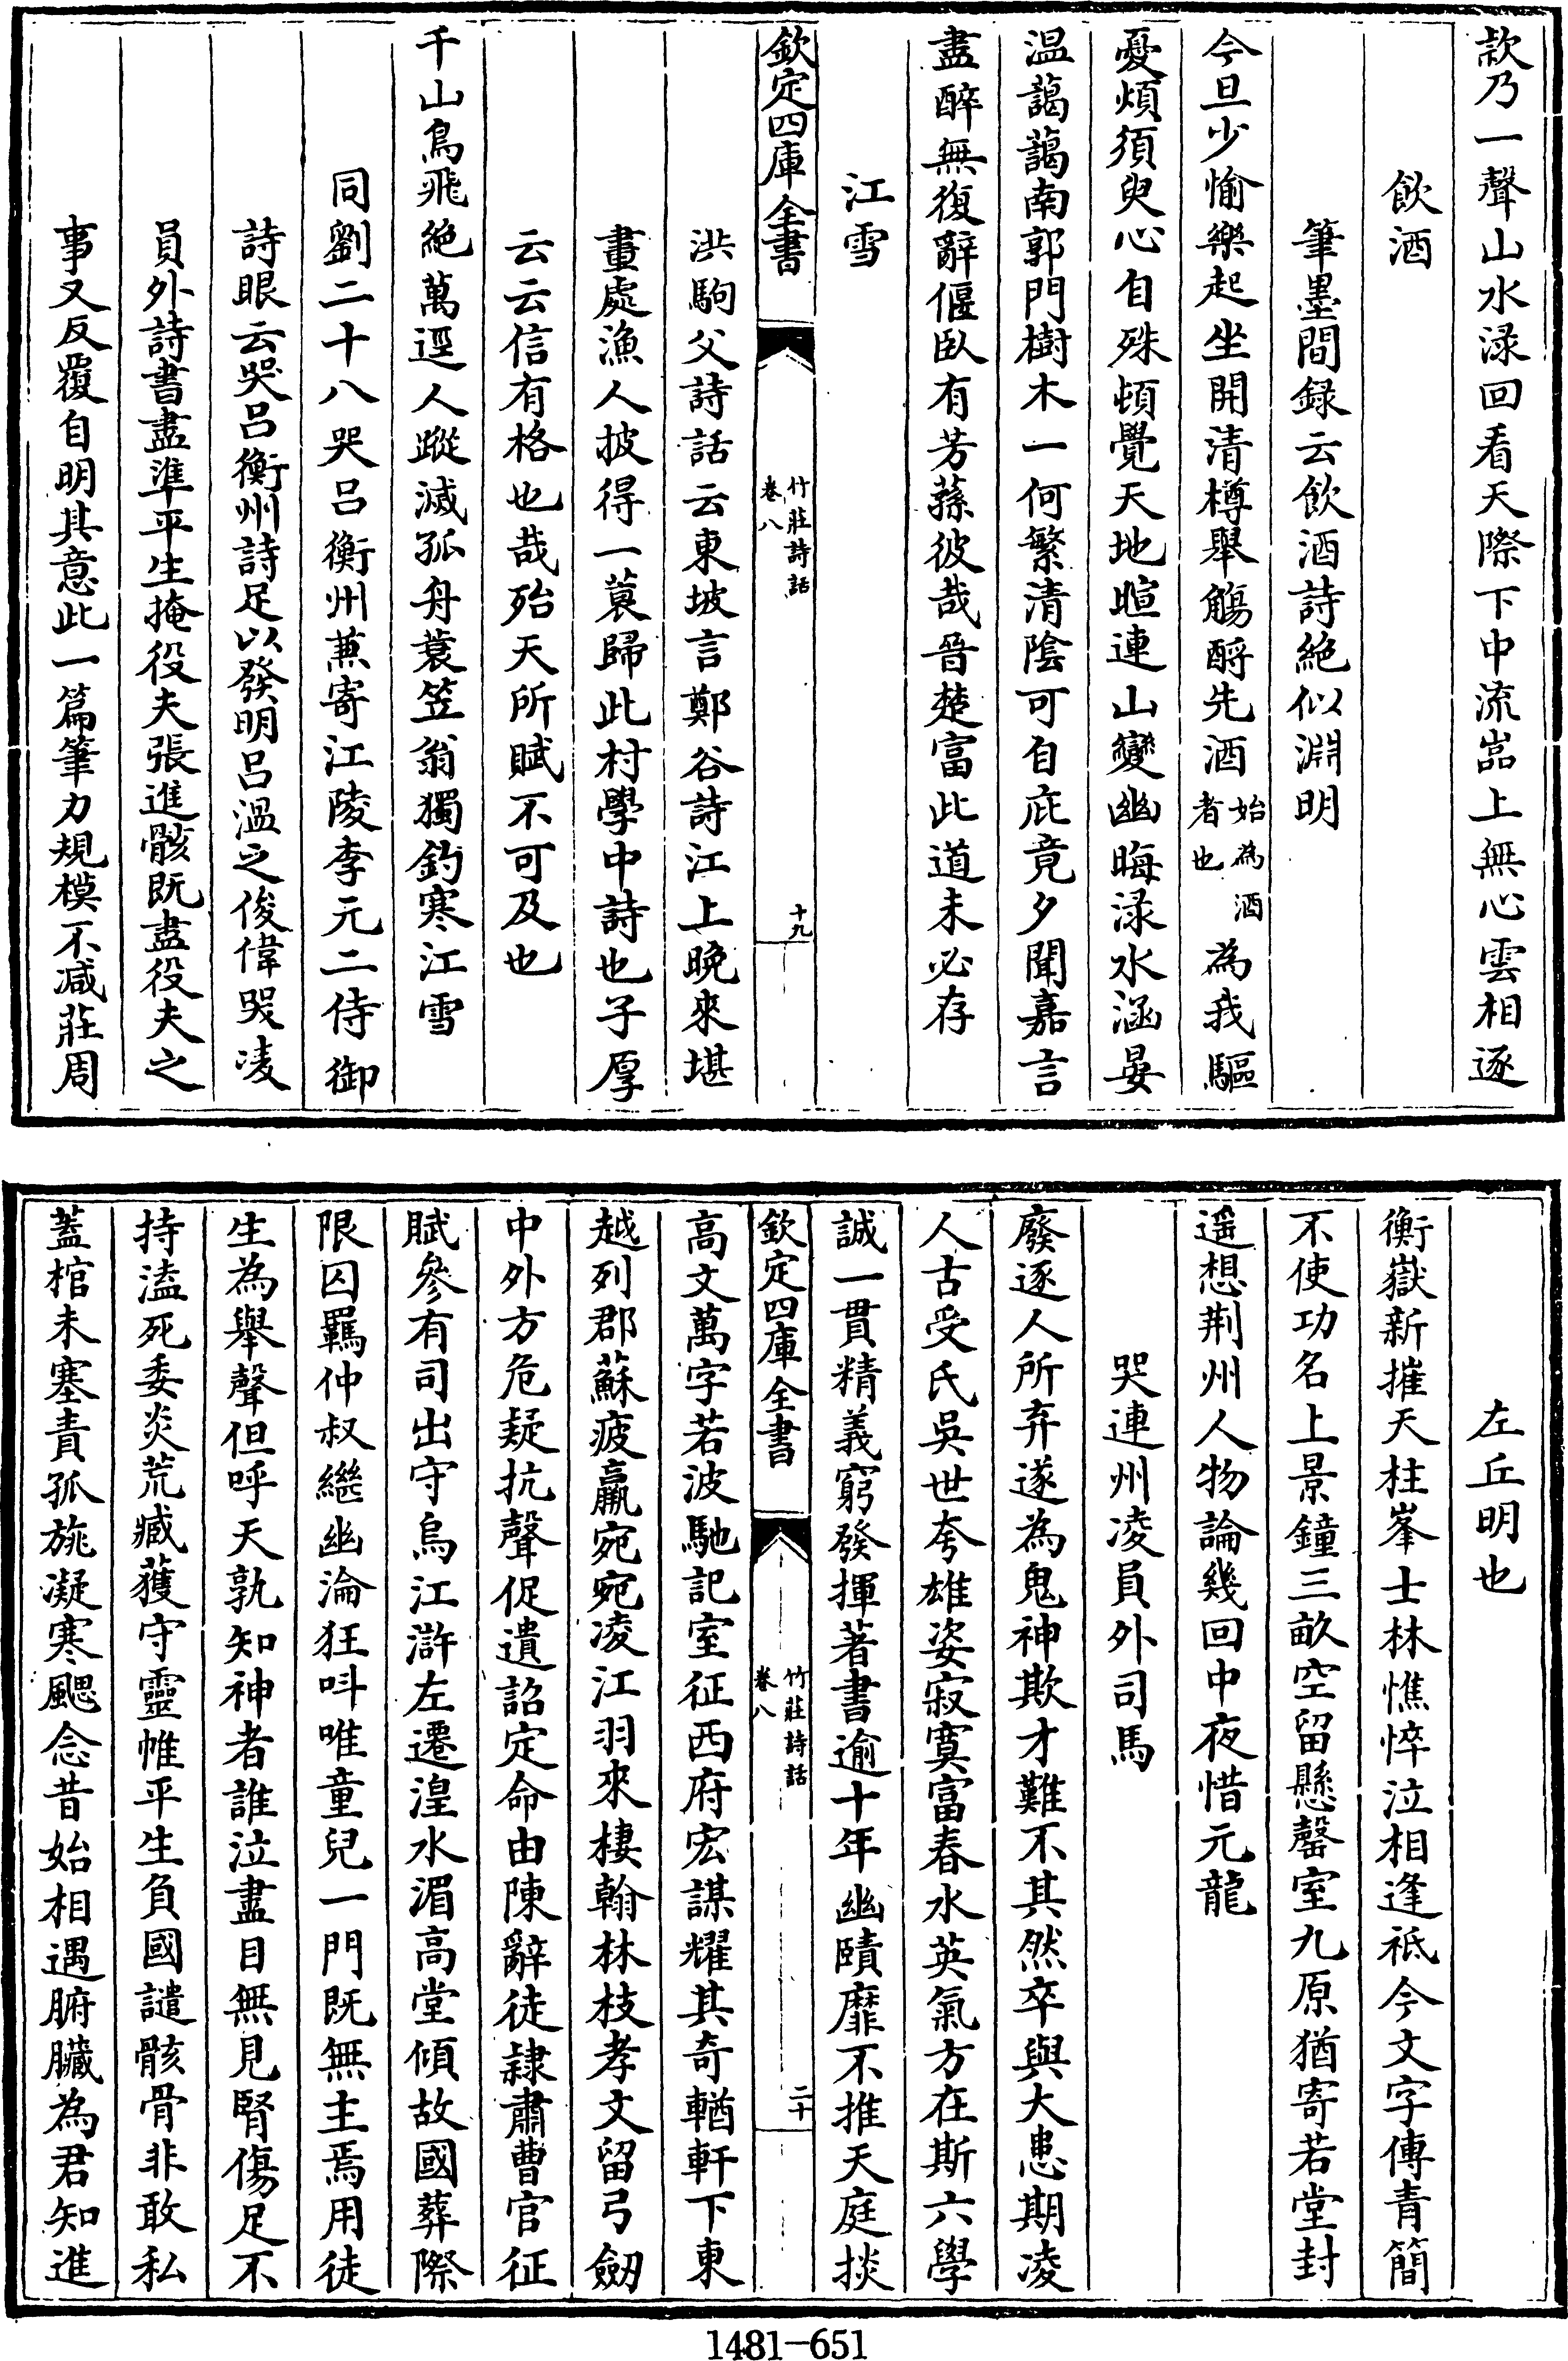 欵乃一聲山水渌回看天際下中流嵓上無心雲相逐
飲酒
筆墨間録云飲酒詩絶似淵明
今旦少愉樂起坐開清樽舉觴酹先酒始為酒者也為我驅
憂煩須臾心自殊頓覺天地暄連山變幽晦渌水涵晏
温藹藹南郭門樹木一何繁清隂可自庇竟夕聞嘉言
盡醉無復辭偃臥有芳蓀彼哉晉楚富此道未必存
江雪
欽定四庫全書
竹莊詩話
卷八
十九
洪駒父詩話云東坡言鄭谷詩江上晚來堪
畫處漁人披得一蓑歸此村學中詩也子厚
云云信有格也哉殆天所賦不可及也
千山鳥飛絶萬逕人蹤滅孤舟蓑笠翁獨釣寒江雪
同劉二十八哭吕衡州蕪寄江陵李元二侍御
詩眼云哭吕衡州詩足以發明吕温之俊偉哭凌
員外詩書盡準平生掩役夫張進骸既盡役夫之
事又反覆自明其意此一篇筆力規模不减莊周
左丘明也
衡嶽新摧天柱峯士林憔悴泣相逢祇今文字傳青簡
不使功名上景鐘三畝空留懸罄室九原猶寄若堂封
遥想荆州人物論幾回中夜惜元龍
哭連州凌員外司馬
廢逐人所弃遂為鬼神欺才難不其然卒與大患期凌
人古受氏吳世夸雄姿寂寞富春水英氣方在斯六學
誠一貫精義窮發揮著書逾十年幽賾靡不推天庭掞
欽定四庫全書
竹莊詩話
卷八
二十
高文萬字若波馳記室征西府宏謀耀其奇輶軒下東
越列郡蘇疲羸宛宛凌江羽來棲翰林枝孝文留弓劒
中外方危疑抗聲促遺詔定命由陳辭徒隷肅曹官征
賦參有司出守烏江滸左遷湟水湄高堂傾故國葬際
限囚羈仲叔繼幽淪狂呌唯童兒一門既無主焉用徒
生為舉聲但呼天孰知神者誰泣盡目無見腎傷足不
持溘死委炎荒臧獲守靈帷平生負國譴骸骨非敢私
蓋棺未塞責孤旐凝寒颸念昔始相遇腑臟為君知進
1481-651